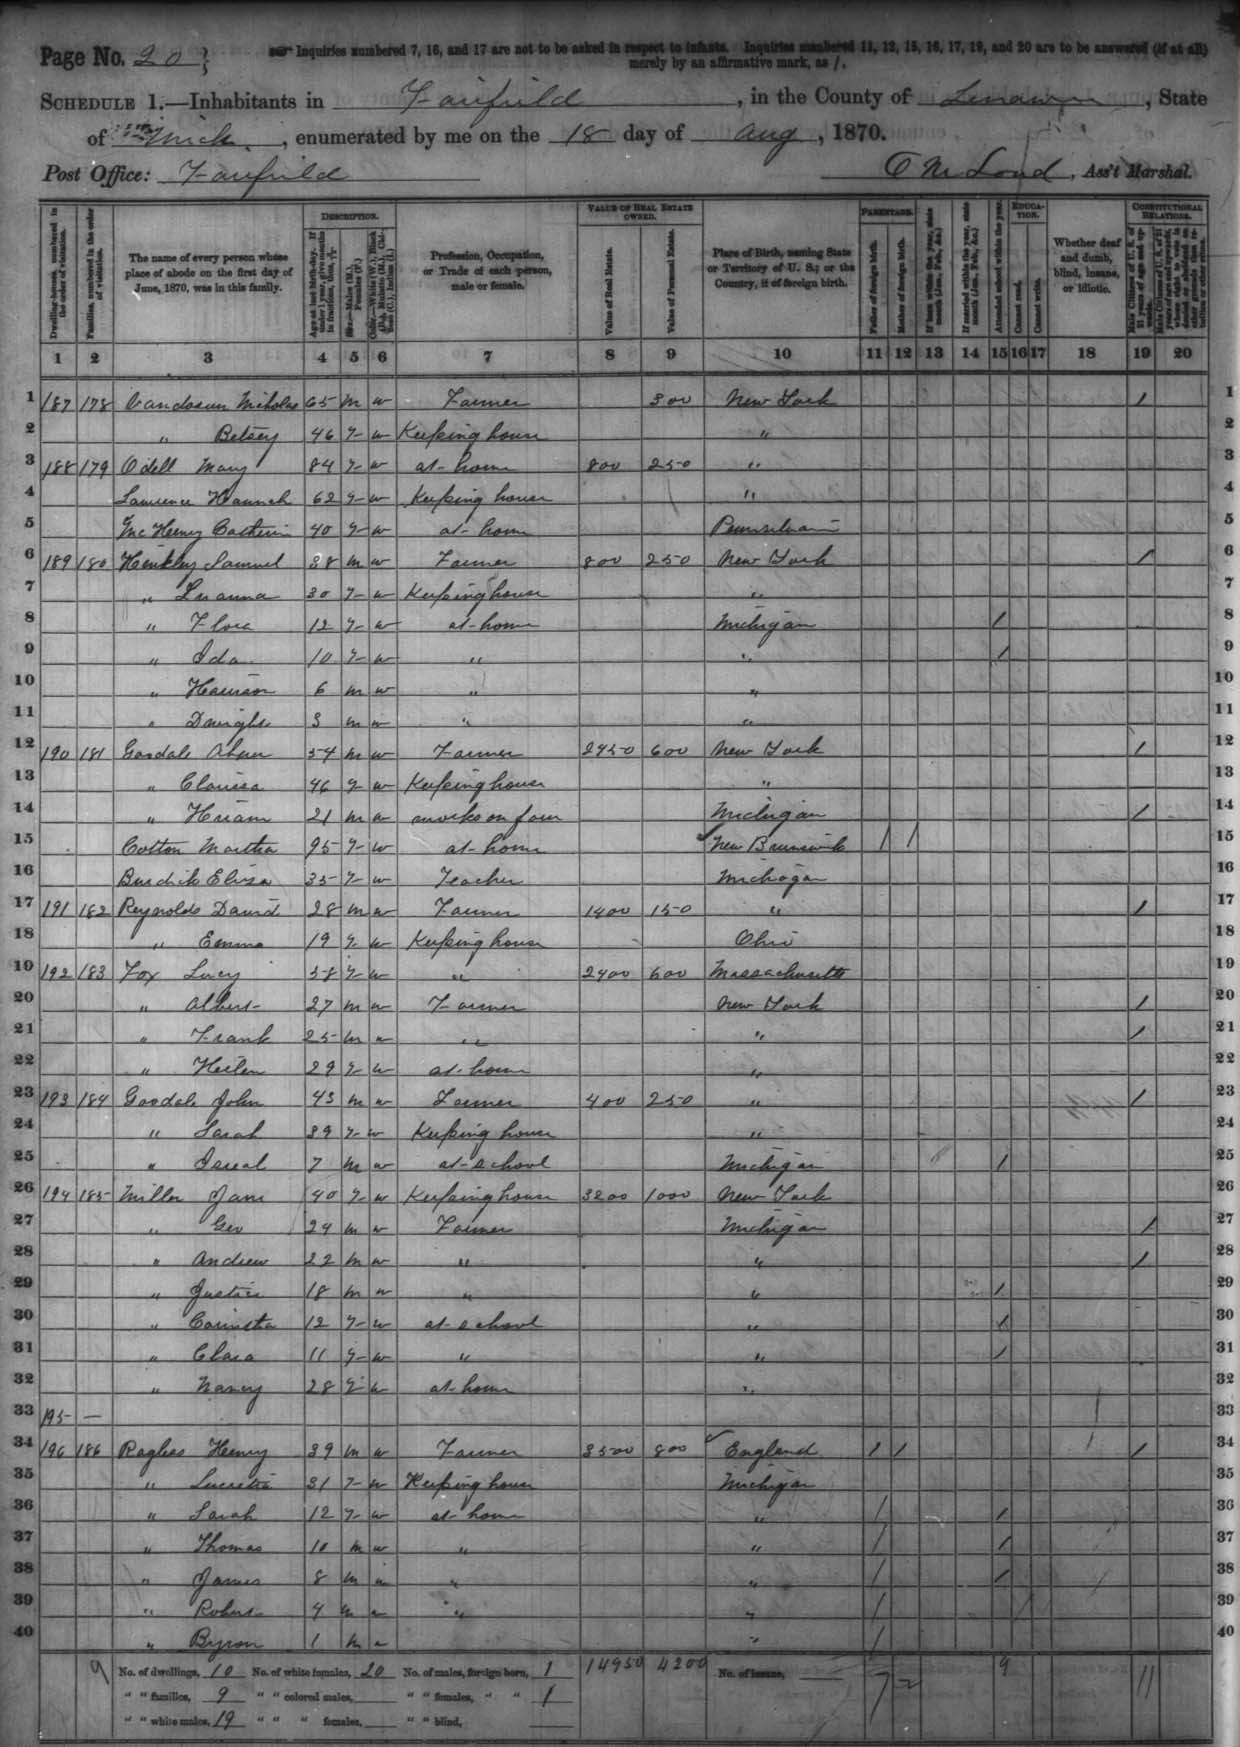 Page No. 20 } Inquiries numbered 7, 16, and 17 are not to be asked in respect to infants. Inquiries numbered 11, 12, 15, 16, 17, 19, and 20 are to be answered (if at all) merely by an affirmative mark, as /.
SCHEDULE 1.—Inhabitants in Fairfield, in the County of Lenawee, State
of Mich, enumerated by me on the 18 day of Aug, 1870.
Post Office: Fairfield
Ass't Marshal.
Dwelling-houses, numbered in the order of visitation.
Families, numbered in the order of visitation.
The name of every person whose place of abode on the first day of June, 1870, was in this family.
DESCRIPTION.
Age at last birth-day. If under 1 year, give months in fractions, thus, 3/12
Sex.—Males (M.), Females (F.)
Color.—White (W.), Black (B.), Mulatto (M.), Chinese (C.), Indian (I.)
Profession, Occupation, or Trade of each person, male or female.
VALUE OF REAL ESTATE OWNED.
Value of Real Estate.
Value of Personal Estate.
Place of Birth, naming State or Territory of U. S.; or the Country, if of foreign birth.
PARENTAGE.
Father of foreign birth.
Mother of foreign birth.
If born within the year, state month (Jan., Feb., &c.)
If married within the year, state month (Jan., Feb., &c.)
EDUCATION.
Attended school within the year.
Cannot read.
Cannot write.
Whether deaf and dumb, blind, insane, or idiotic.
CONSTITUTIONAL RELATIONS.
Male Citizens of U. S. of 21 years of age and upwards.
1 2 3 4 5 6 7 8 9 10 11 12 13 14 15 16 17 18 19 20
1 187 178 Nicholas 65 m w Farmer 300 New York / 1
2 " Betsey 46 F w Keeping house " 2
3 188 179 Odell Mary 84 F w at home 800 250 " 3
4 Lawrence Hannah 62 F w Keeping house " 4
5 McHenry 40 F w at home 5
6 189 180 Hinkley Samuel 38 m w Farmer 800 250 New York / 6
7 " 30 F w Keeping house " 7
8 " Flora 12 F w at home Michigan / 8
9 " Ida 10 F w " " / 9
10 " Harrison 6 m w " " 10
11 " Dwight 3 m w " " 11
12 190 181 Goodale 54 m w Farmer 2450 600 New York / 12
13 " Clarissa 46 F w Keeping house " 13
14 " Hiram 21 m w works on farm Michigan / 14
15 Cotton Martha 95 F w at home New Brunswick / / 15
16 Burdick Eliza 35 F w Teacher Michigan 16
17 191 182 Reynolds David 28 m w Farmer 1400 150 " / 17
18 " Emma 19 F w Keeping house Ohio 18
19 192 183 Fox Lucy 58 F w " 2400 600 Massachusetts 19
20 " Albert 27 m w Farmer New York / 20
21 " Frank 25 m w " " / 21
22 " Hellen 29 F w at home " 22
23 193 184 Goodale John 43 m w Farmer 400 250 " / 23
24 " Sarah 39 F w Keeping house " 24
25 " 7 m w at school Michigan / 25
26 194 185 Miller Jane 40 F w Keeping house 3200 1000 New York 26
27 " Geo 24 m w Farmer Michigan / 27
28 " Andrew 22 m w " " / 28
29 " Justice 18 m w " " / 29
30 " 12 F w at school " / 30
31 " Clara 11 F w " " / 31
32 " Nancy 28 F w at home " 32
33 195 — 33
34 196 186 Ragless Henry 39 m w Farmer 3500 800 England / / / 34
35 " Lucretia 31 F w Keeping house Michigan 35
36 " Sarah 12 F w at home " / / 36
37 " Thomas 10 m w " " / / 37
38 " James 8 m w " " / / 38
39 " Robert 4 m w " " / 39
40 " Byron 1 m w " / 40
9 No. of dwellings, 10 No. of white females, 20 No. of males, foreign born, 1 14950 4200 No. of insane, 7 2 9 11
" " families, 9 " " colored males, " " females, " " 1
" " white males, 19 " " " females, " " blind,